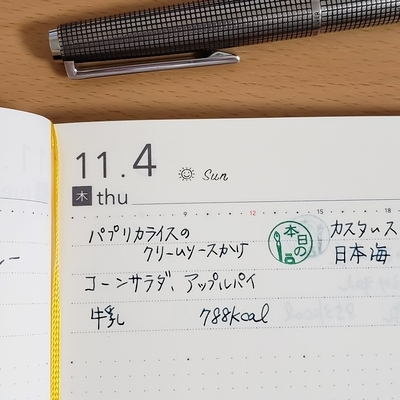 11.4
Sun
木 thu
9 12 15 18
パプリカライスの
クリームソースかけ
本日の
カスタムス
日本海
コーンサラダ、アップルパイ
牛乳 788kcal